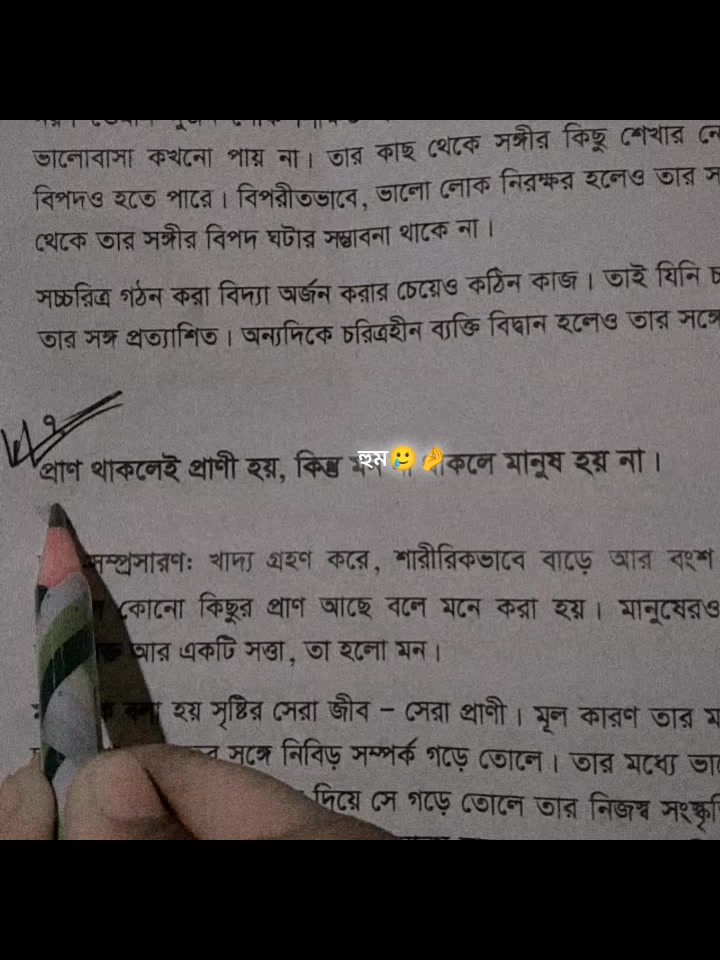 ভালোবাসা কখনো পায় না। তার কাছ থেকে সঙ্গীর কিছু শেখার
বিপদও হতে পারে। বিপরীতভাবে, ভালো লোক নিরক্ষর হলেও তার
থেকে তার সঙ্গীর বিপদ ঘটার সম্ভাবনা থাকে না।
সচ্চরিত্র গঠন করা বিদ্যা অর্জন করার চেয়েও কঠিন কাজ। তাই যিনি
তার সঙ্গ প্রত্যাশিত। অন্যদিকে চরিত্রহীন ব্যক্তি বিদ্বান হলেও তার সঙ্গে
৭
প্রাণ থাকলেই প্রাণী হয়, কিন্তু হুম🥲🤌 মানুষ হয় না।
সম্প্রসারণ: খাদ্য গ্রহণ করে, শারীরিকভাবে বাড়ে আর বংশ
কোনো কিছুর প্রাণ আছে বলে মনে করা হয়। মানুষেরও
আর একটি সত্তা, তা হলো মন।
হয় সৃষ্টির সেরা জীব – সেরা প্রাণী। মূল কারণ তার
সঙ্গে নিবিড় সম্পর্ক গড়ে তোলে। তার মধ্যে
দিয়ে সে গড়ে তোলে তার নিজস্ব